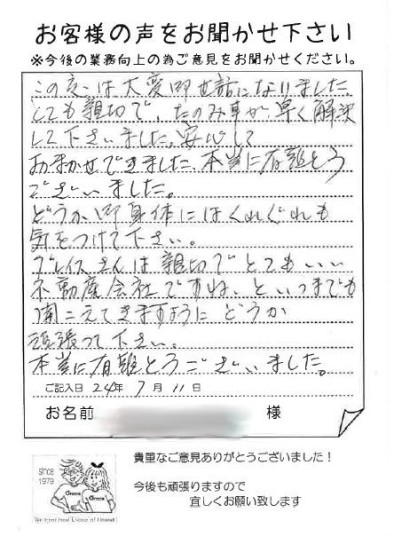 お客様の声をお聞かせ下さい
※今後の業務向上の為ご意見をお聞かせください。
この度は大変御世話になりました
とても親切で、たのみ事が早く解決
して下さいました。安心して
おまかせできました、本当に有難とう
ございました。
どうか御身体にはくれぐれも
気をつけて下さい。
グレイスさんは親切でとてもいい
不動産会社ですね、といつまでも
聞こえてきますようにどうか
頑張って下さい。
本当に有難とうございました。
ご記入日 24年 7月 11日
お名前 様
since
1979
Grace
Grace
貴重なご意見ありがとうございました！
今後も頑張りますので
宜しくお願い致します